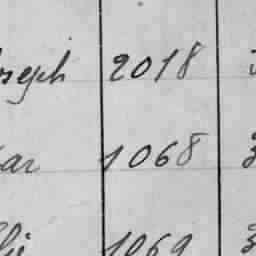 oseph 2018
kar 1068
1069 3